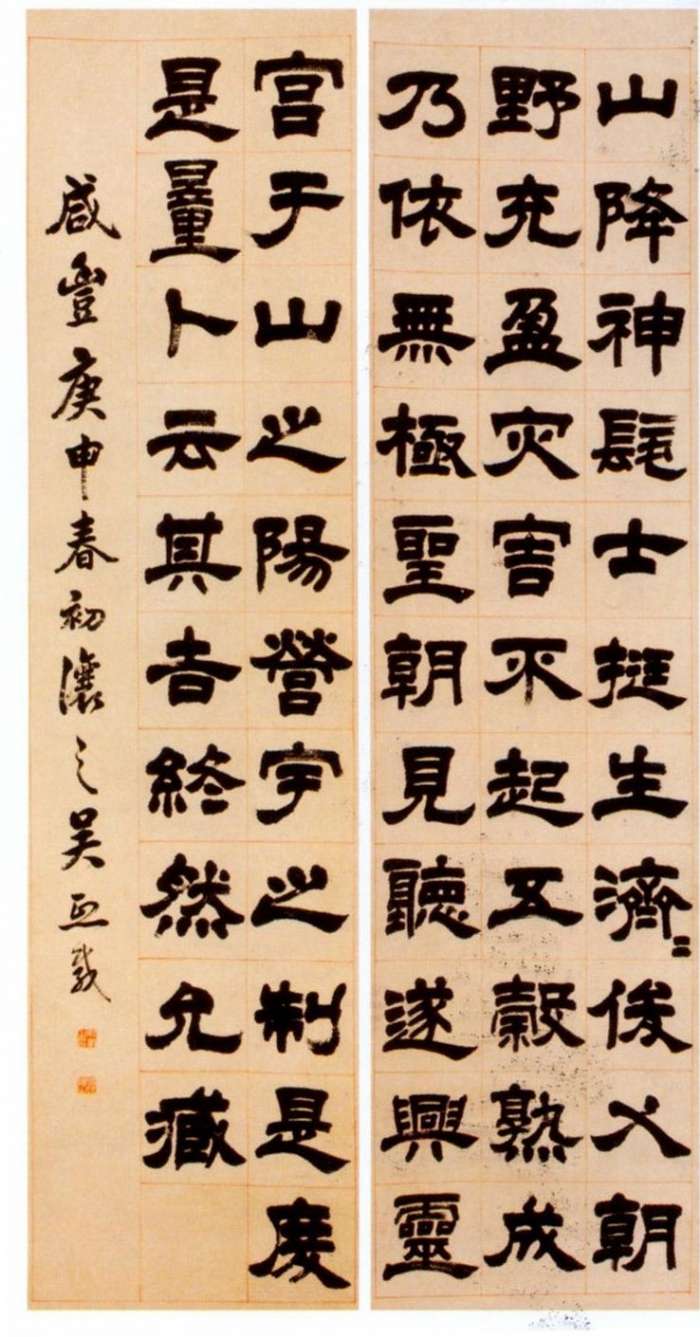 山降神髦士挺生濟〻俊乂朝
野充盈灾害不起五穀熟成
乃依無極聖朝見聽遂興靈
宮于山之陽營宇之制是度
是量卜云其吉終然允臧
咸豐庚申春初瀼之吳熙載